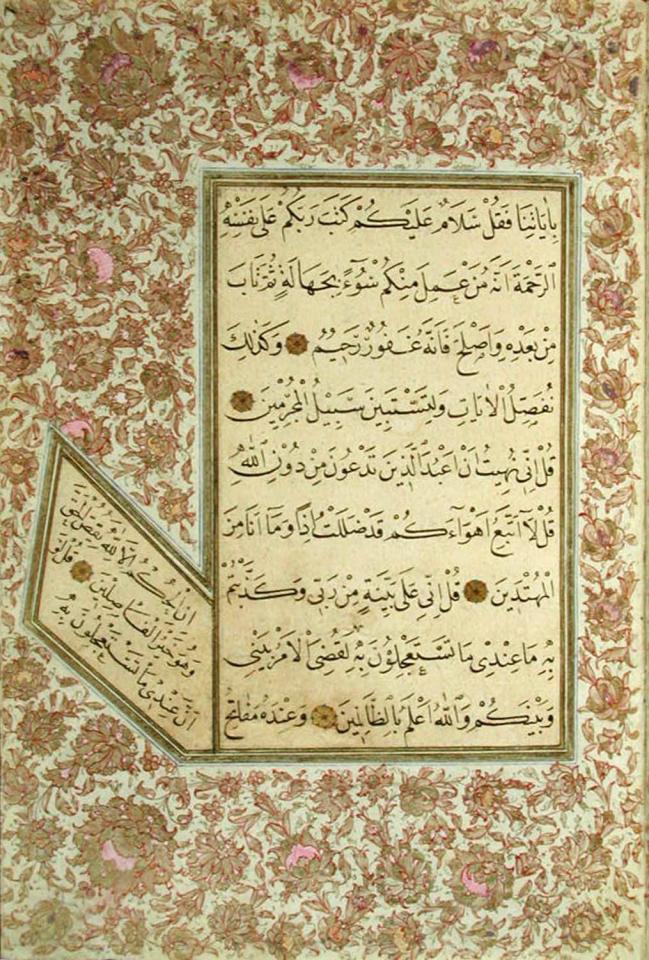 بِاٰيَاتِنَا فَقُلْ سَلَامٌ عَلَيْكُمْ كَتَبَ رَبُّكُمْ عَلٰى نَفْسِهِ
الرَّحْمَةَ اَنَّهُ مَنْ عَمِلَ مِنْكُمْ سُوٓءًا بِجَهَالَةٍ ثُمَّ تَابَ
مِنْ بَعْدِهِ وَاَصْلَحَ فَاَنَّهُ غَفُورٌ رَحِيمٌ وَكَذٰلِكَ
نُفَصِّلُ الْاٰيَاتِ وَلِتَسْتَبِينَ سَبِيلُ الْمُجْرِمِينَ
قُلْ اِنِّي نُهِيتُ اَنْ اَعْبُدَ الَّذِينَ تَدْعُونَ مِنْ دُونِ اللّٰهِ
قُلْ لَٓا اَتَّبِعُ اَهْوَٓاءَكُمْ قَدْ ضَلَلْتُ اِذًا وَمَٓا اَنَا مِنَ
الْمُهْتَدِينَ قُلْ اِنِّي عَلٰى بَيِّنَةٍ مِنْ رَبِّي وَكَذَّبْتُمْ
بِهِ مَا عِنْدِي مَا تَسْتَعْجِلُونَ بِهِ لَقُضِيَ الْاَمْرُ بَيْنِي
وَبَيْنَكُمْ وَاللّٰهُ اَعْلَمُ بِالظَّالِمِينَ وَعِنْدَهُ مَفَاتِحُ
اِنِ الْحُكْمُ اِلَّا لِلّٰهِ يَقُصُّ الْحَقَّ
وَهُوَ خَيْرُ الْفَاصِلِينَ قُلْ لَوْ
اَنَّ عِنْدِي مَا تَسْتَعْجِلُونَ بِهِ